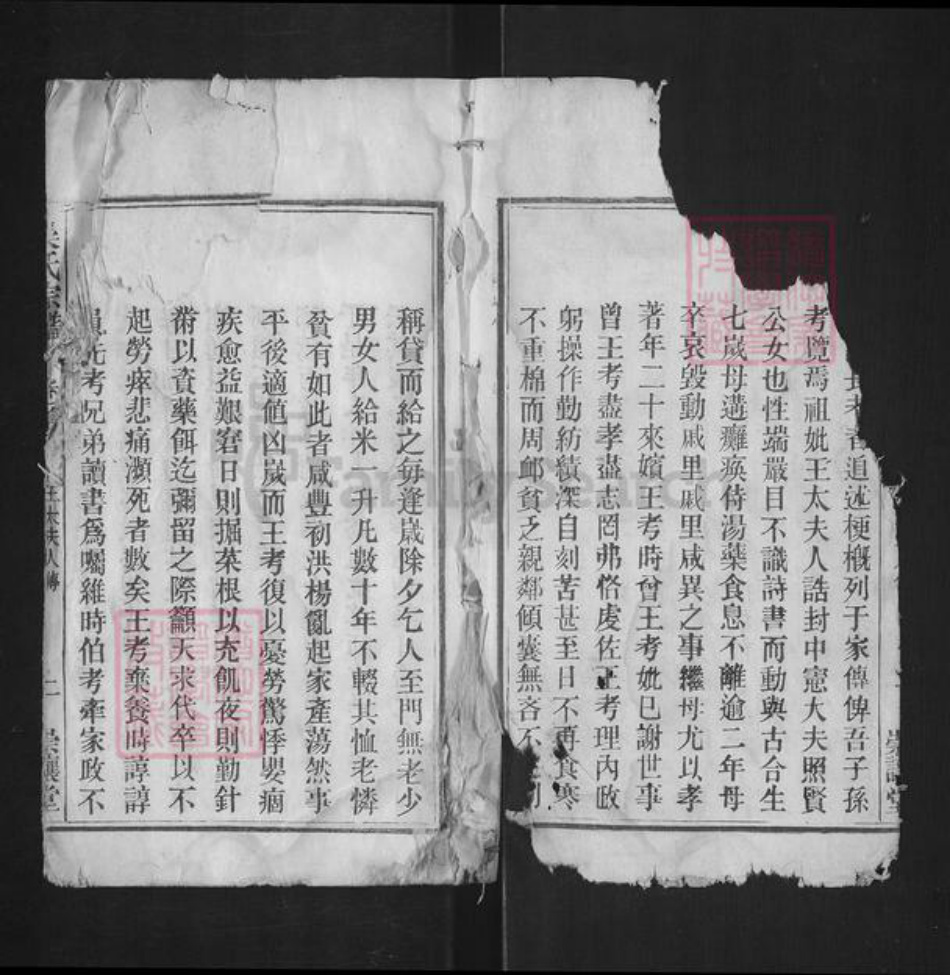 追述梗概列于家傳俾吾子孫
考覽焉祖妣王太夫人誥封中憲大夫照賢
公女也性端嚴目不識詩書而動與古合生
七歲母遘癱瘓侍湯藥食息不離逾二年母
卒哀毀動戚里戚里咸異之事繼母尤以孝
著年二十來嬪王考時曾王考妣已謝世事
曾王考盡孝盡志罔弗恪虔佐王考理內政
躬操作勤紡績深自刻苦甚至日不再食寒
不重棉而周卹貧乏親鄰傾囊無吝不
稱貸而給之每逢歲除夕乞人至門無老少
男女人給米一升凡數十年不輟其恤老憐
貧有如此者咸豐初洪楊亂起家產蕩然事
平後適値凶歲而王考復以憂勞驚悸嬰痼
疾愈益艱窘日則掘菜根以充飢夜則勤針
黹以資藥餌迄彌留之際籲天求代卒以不
起勞瘁悲痛瀕死者數矣王考棄養時諄諄
以先考兄弟讀書爲囑維時伯考牽家政不
氏宗譜
王太夫人傳
二
崇讓堂